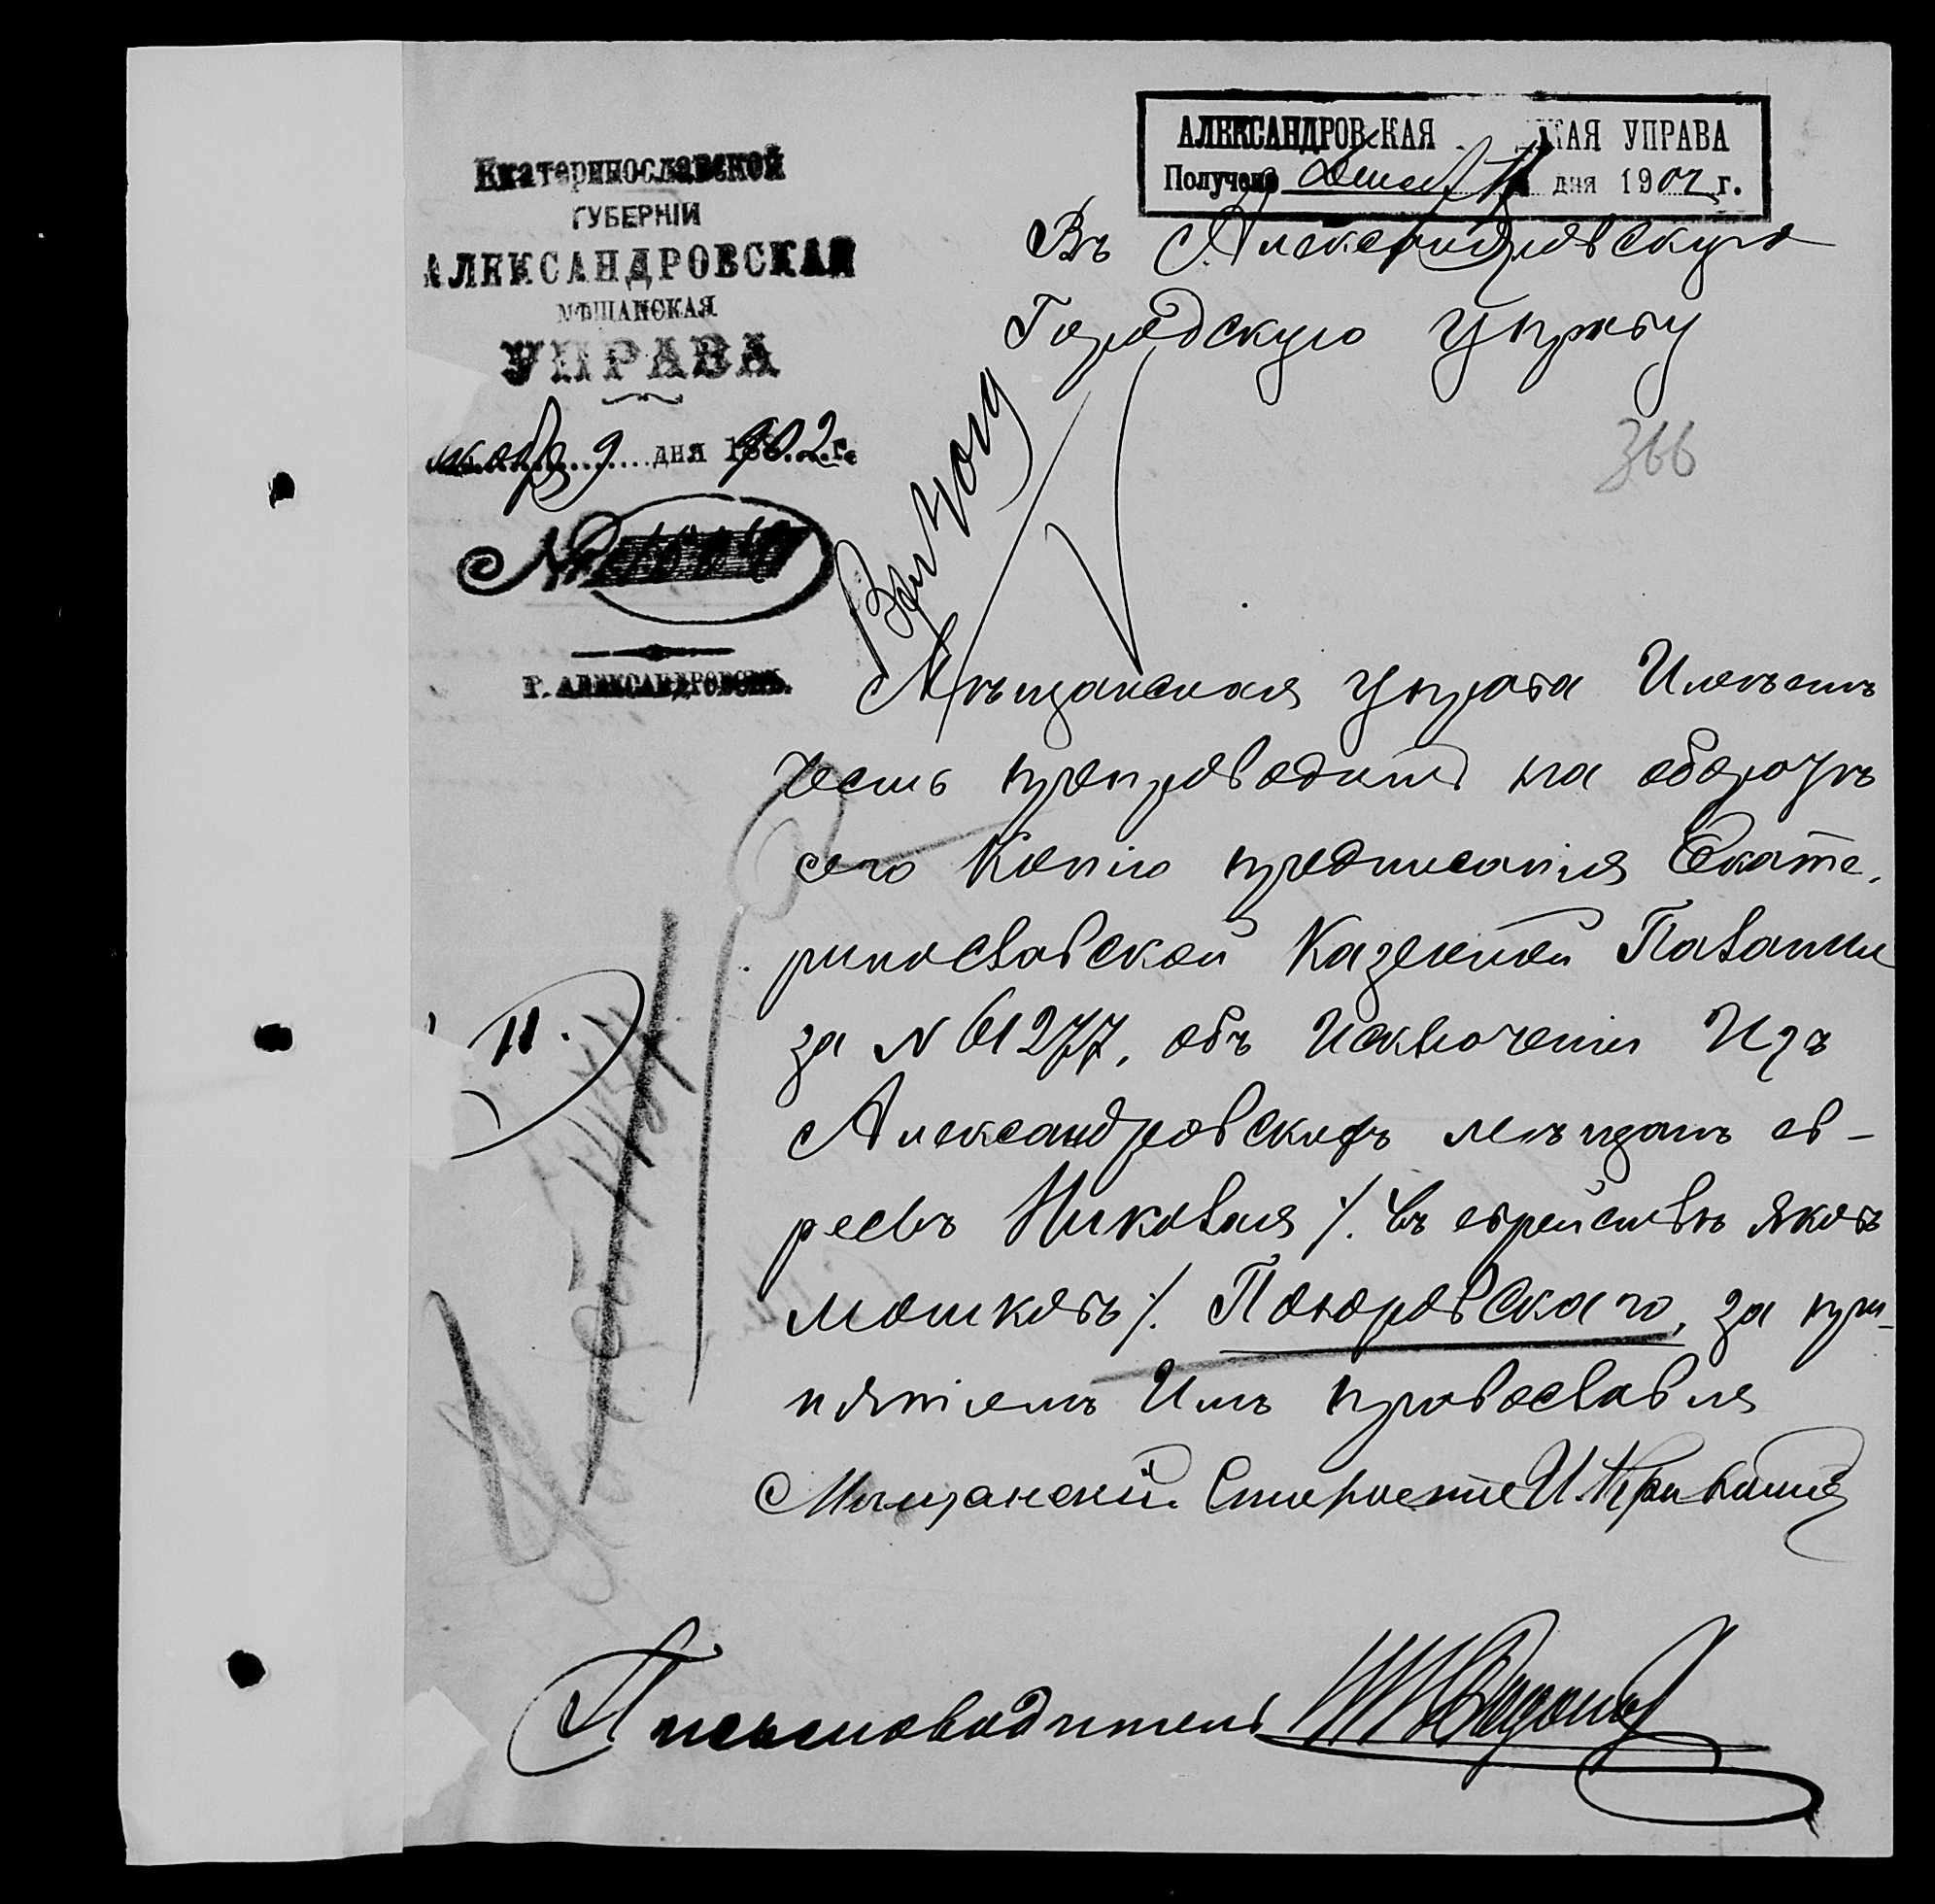 Екатеринославской
ГУБЕРНІИ
АЛЕКСАНДРОВСКАЯ
МѢЩАНСКАЯ
УПРАВА
9 дня 1902 г.
№
Г. АЛЕКСАНДРОВСКЪ.
АЛЕКСАНДРОВСКАЯ КАЯ УПРАВА
Получено дня 1902 г.
Въ Александровскую
Городскую Управу
366
Мѣщанская Управа Имѣетъ
честь препроводить на оборотѣ
сего Копію предписанія Екате.
ринославской Казенной Палаты
за № 61277, объ Исключеніи Изъ
Александровскихъ мѣщанъ ев-
реевъ Николая /. въ еврействѣ Якова
мошковъ /. Покоровскаго, за при-
нятіемъ Имъ православія
11.
Мѣщанскій Староста И.
Письмоводитель